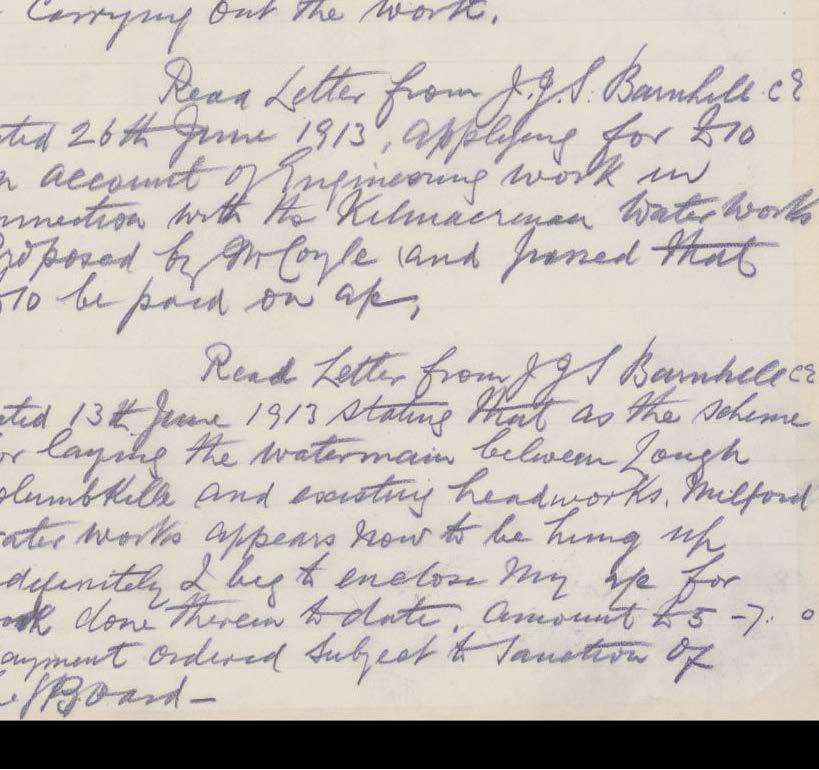 Carrying out the work.
Read Letter from J.G.S. Barnhill CE
ted 26th June 1913, applying for £10
n account of Engineering work in
nnection with the Kilmacrenan Waterworks
roposed by Mr Coyle and passed that
10 be paid on a/c,
Read Letter from J G S Barnhill CE
ted 13th June 1913 stating that as the scheme
or laying the watermain between Lough
olumbkille and existing headworks, Milford
ater works appears now to be hung up
definitely I beg to enclose my a/c for
done therein to date. Amount £5-7. 0
ayment ordered subject to sanction of
Board -